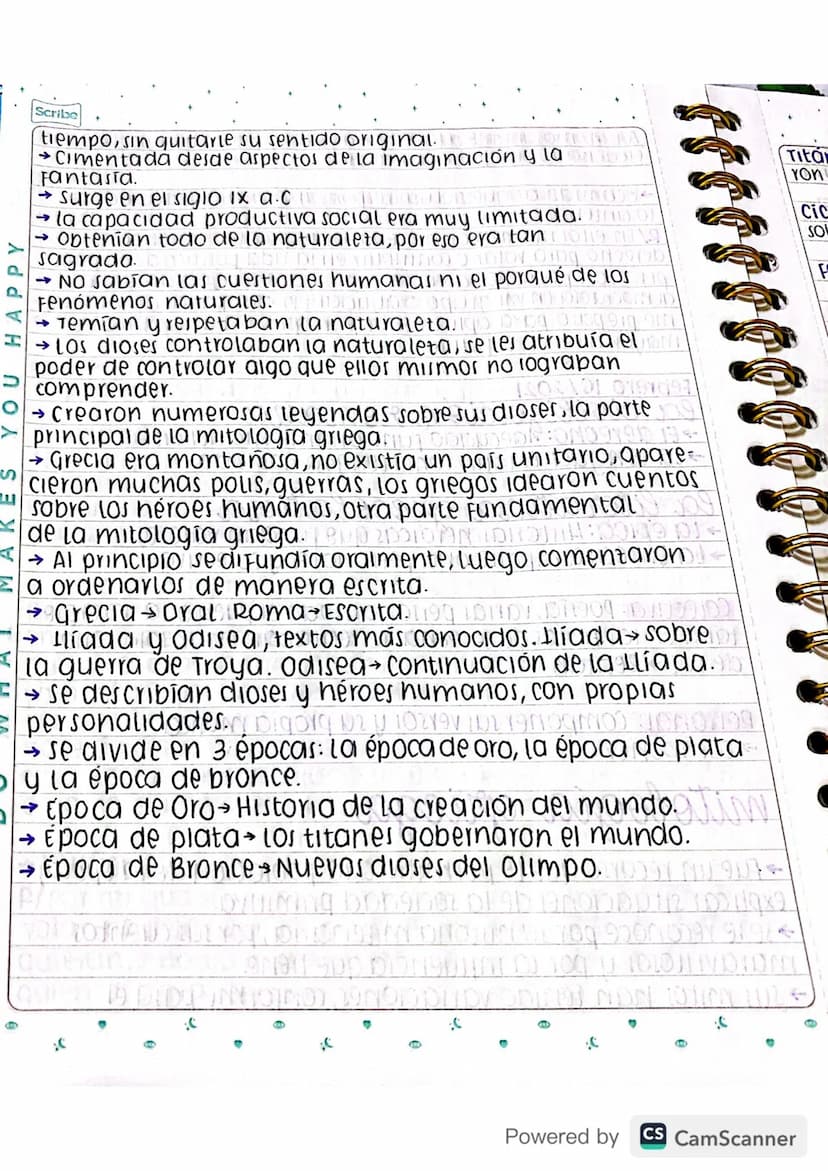 Scribe
tiempo, sin quitarle su sentido original.
→ Cimentada desde aspectos de la imaginación y la
Fantasía.
→ Surge en el siglo IX a.C
→ la capacidad productiva social era muy limitada.
→ Obtenían todo de la naturaleza, por eso era tan
sagrada.
→ No sabían las cuestiones humanas ni el porqué de los
Fenómenos naturales.
→ Temían y respetaban la naturaleza.
→ Los dioses controlaban la naturaleza, se les atribuía el
poder de controlar algo que ellos mismos no lograban
comprender.
→ Crearon numerosas leyendas sobre sus dioses, la parte
principal de la mitología griega.
→ Grecia era montañosa, no existía un país unitario, apare-
cieron muchas polis, guerras, los griegos idearon cuentos
sobre los héroes humanos, otra parte Fundamental
de la mitología griega.
→ Al principio se difundía oralmente, luego comenzaron
a ordenarlos de manera escrita.
→ Grecia → Oral. Roma → Escrita.
→ Ilíada y Odisea, textos más conocidos. Ilíada → sobre
la guerra de Troya. Odisea → Continuación de la Ilíada.
→ se describían dioses y héroes humanos, con propias
personalidades.
→ se divide en 3 épocas: la época de oro, la época de plata
y la época de bronce.
→ Época de Oro → Historia de la creación del mundo.
→ Época de plata → los titanes gobernaron el mundo.
→ Época de Bronce → Nuevos dioses del Olimpo.
DO WHAT MAKES YOU HAPPY
Powered by CS CamScanner